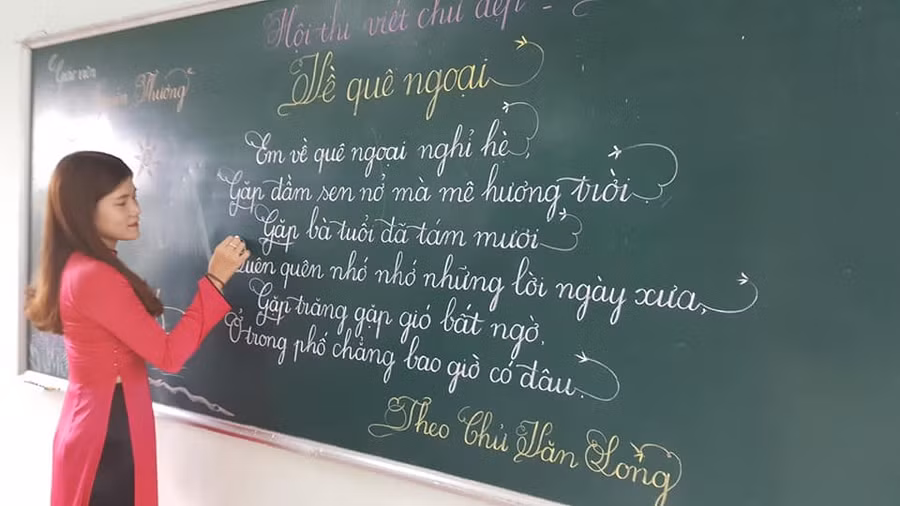 Hội thi viết chữ đẹp -
Giáo viên
Thương
Về quê ngoại
Em về quê ngoại nghỉ hè,
Gặp đầm sen nở mà mê hương trời.
Gặp bà tuổi đã tám mươi
quên quên nhớ nhớ những lời ngày xưa,
Gặp trăng gặp gió bất ngờ,
Ở trong phố chẳng bao giờ có đâu.
Theo Chử Văn Long